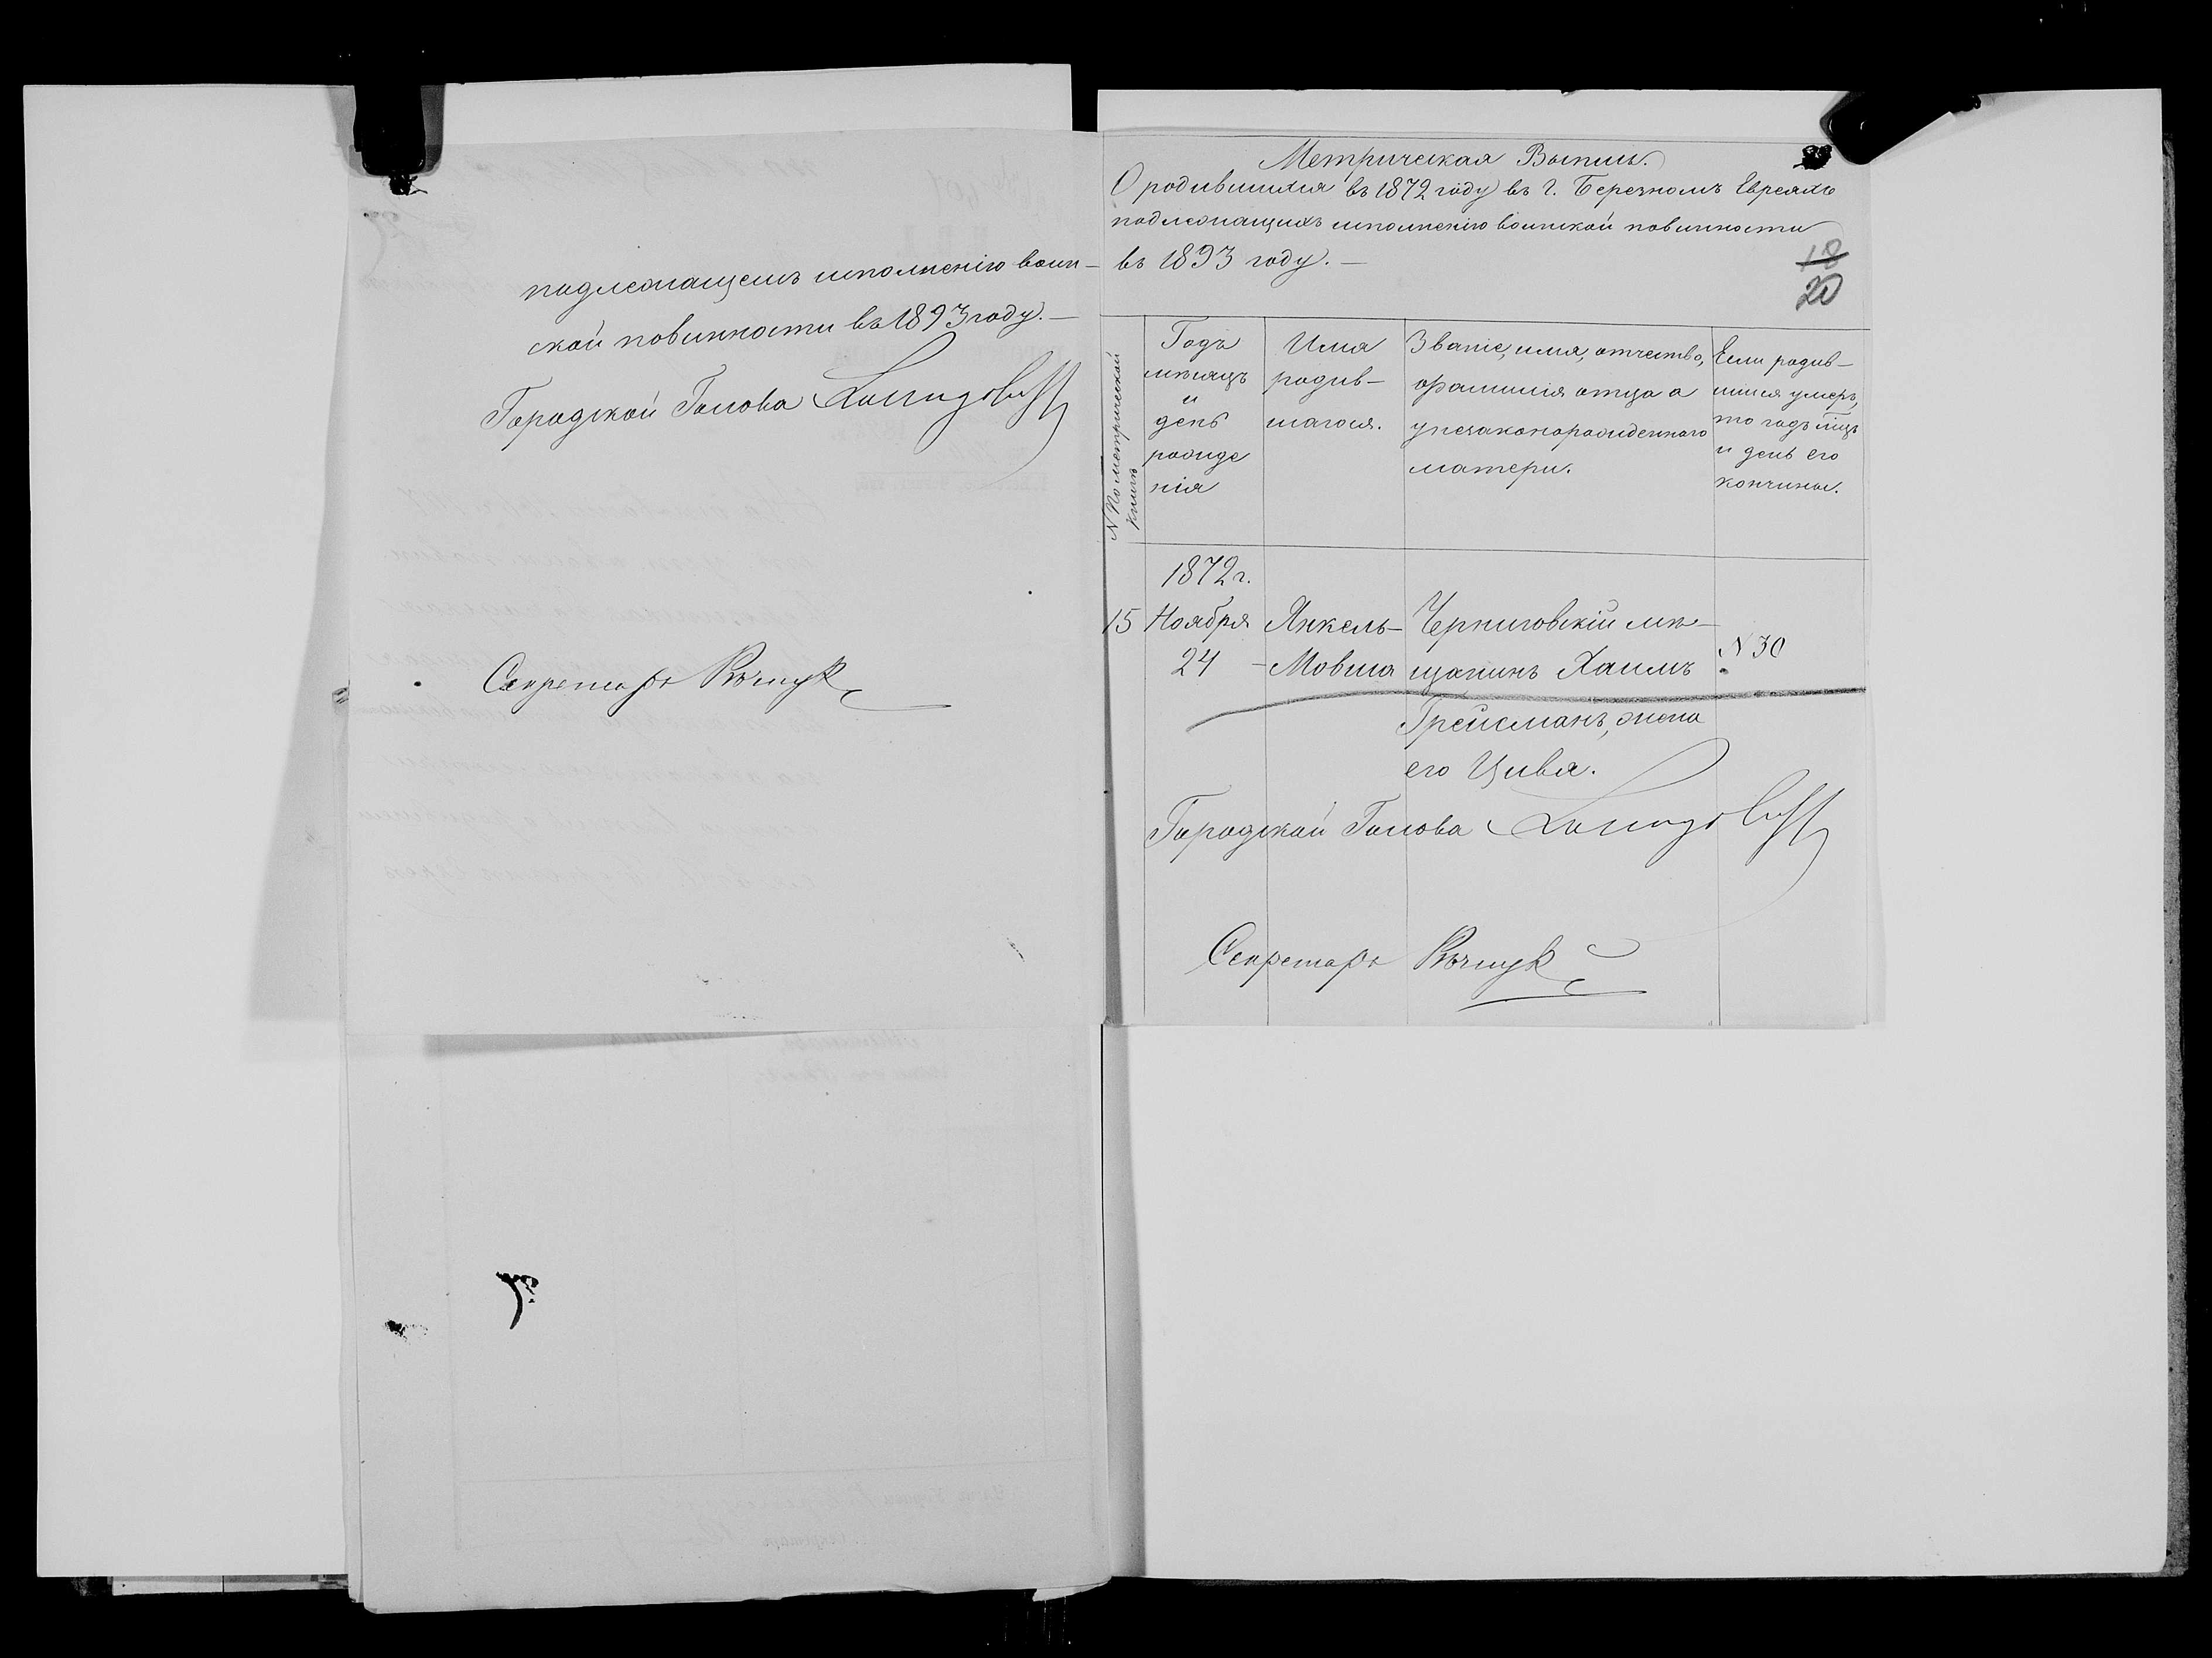 подлежащемъ исполненію воин-
ской повинности въ 1893 году.—
Городской Голова
Секретарь
Метрическая Выпись.
О родившихся въ 1872 году въ г. Березномъ Евреяхъ
подлежащихъ исполненію воинской повинности
въ 1893 году.—
18
20
№ По метрической
книгѣ
Годъ
мѣсяцъ
и
день
рожде
нія
Имя
родив-
шагося.
Званіе, имя, отчество,
фамилія отца а
у незаконорожденнаго
матери.
Если родив-
шійся умеръ,
то годъ мцъ
и день его
кончины.
1872 г.
15 Ноября Янкель- Черниговскій мѣ-
24 - Мовша щанинъ Хаимъ № 30
Грейсманъ, жена
его Цивя.
Городской Голова
Секретарь